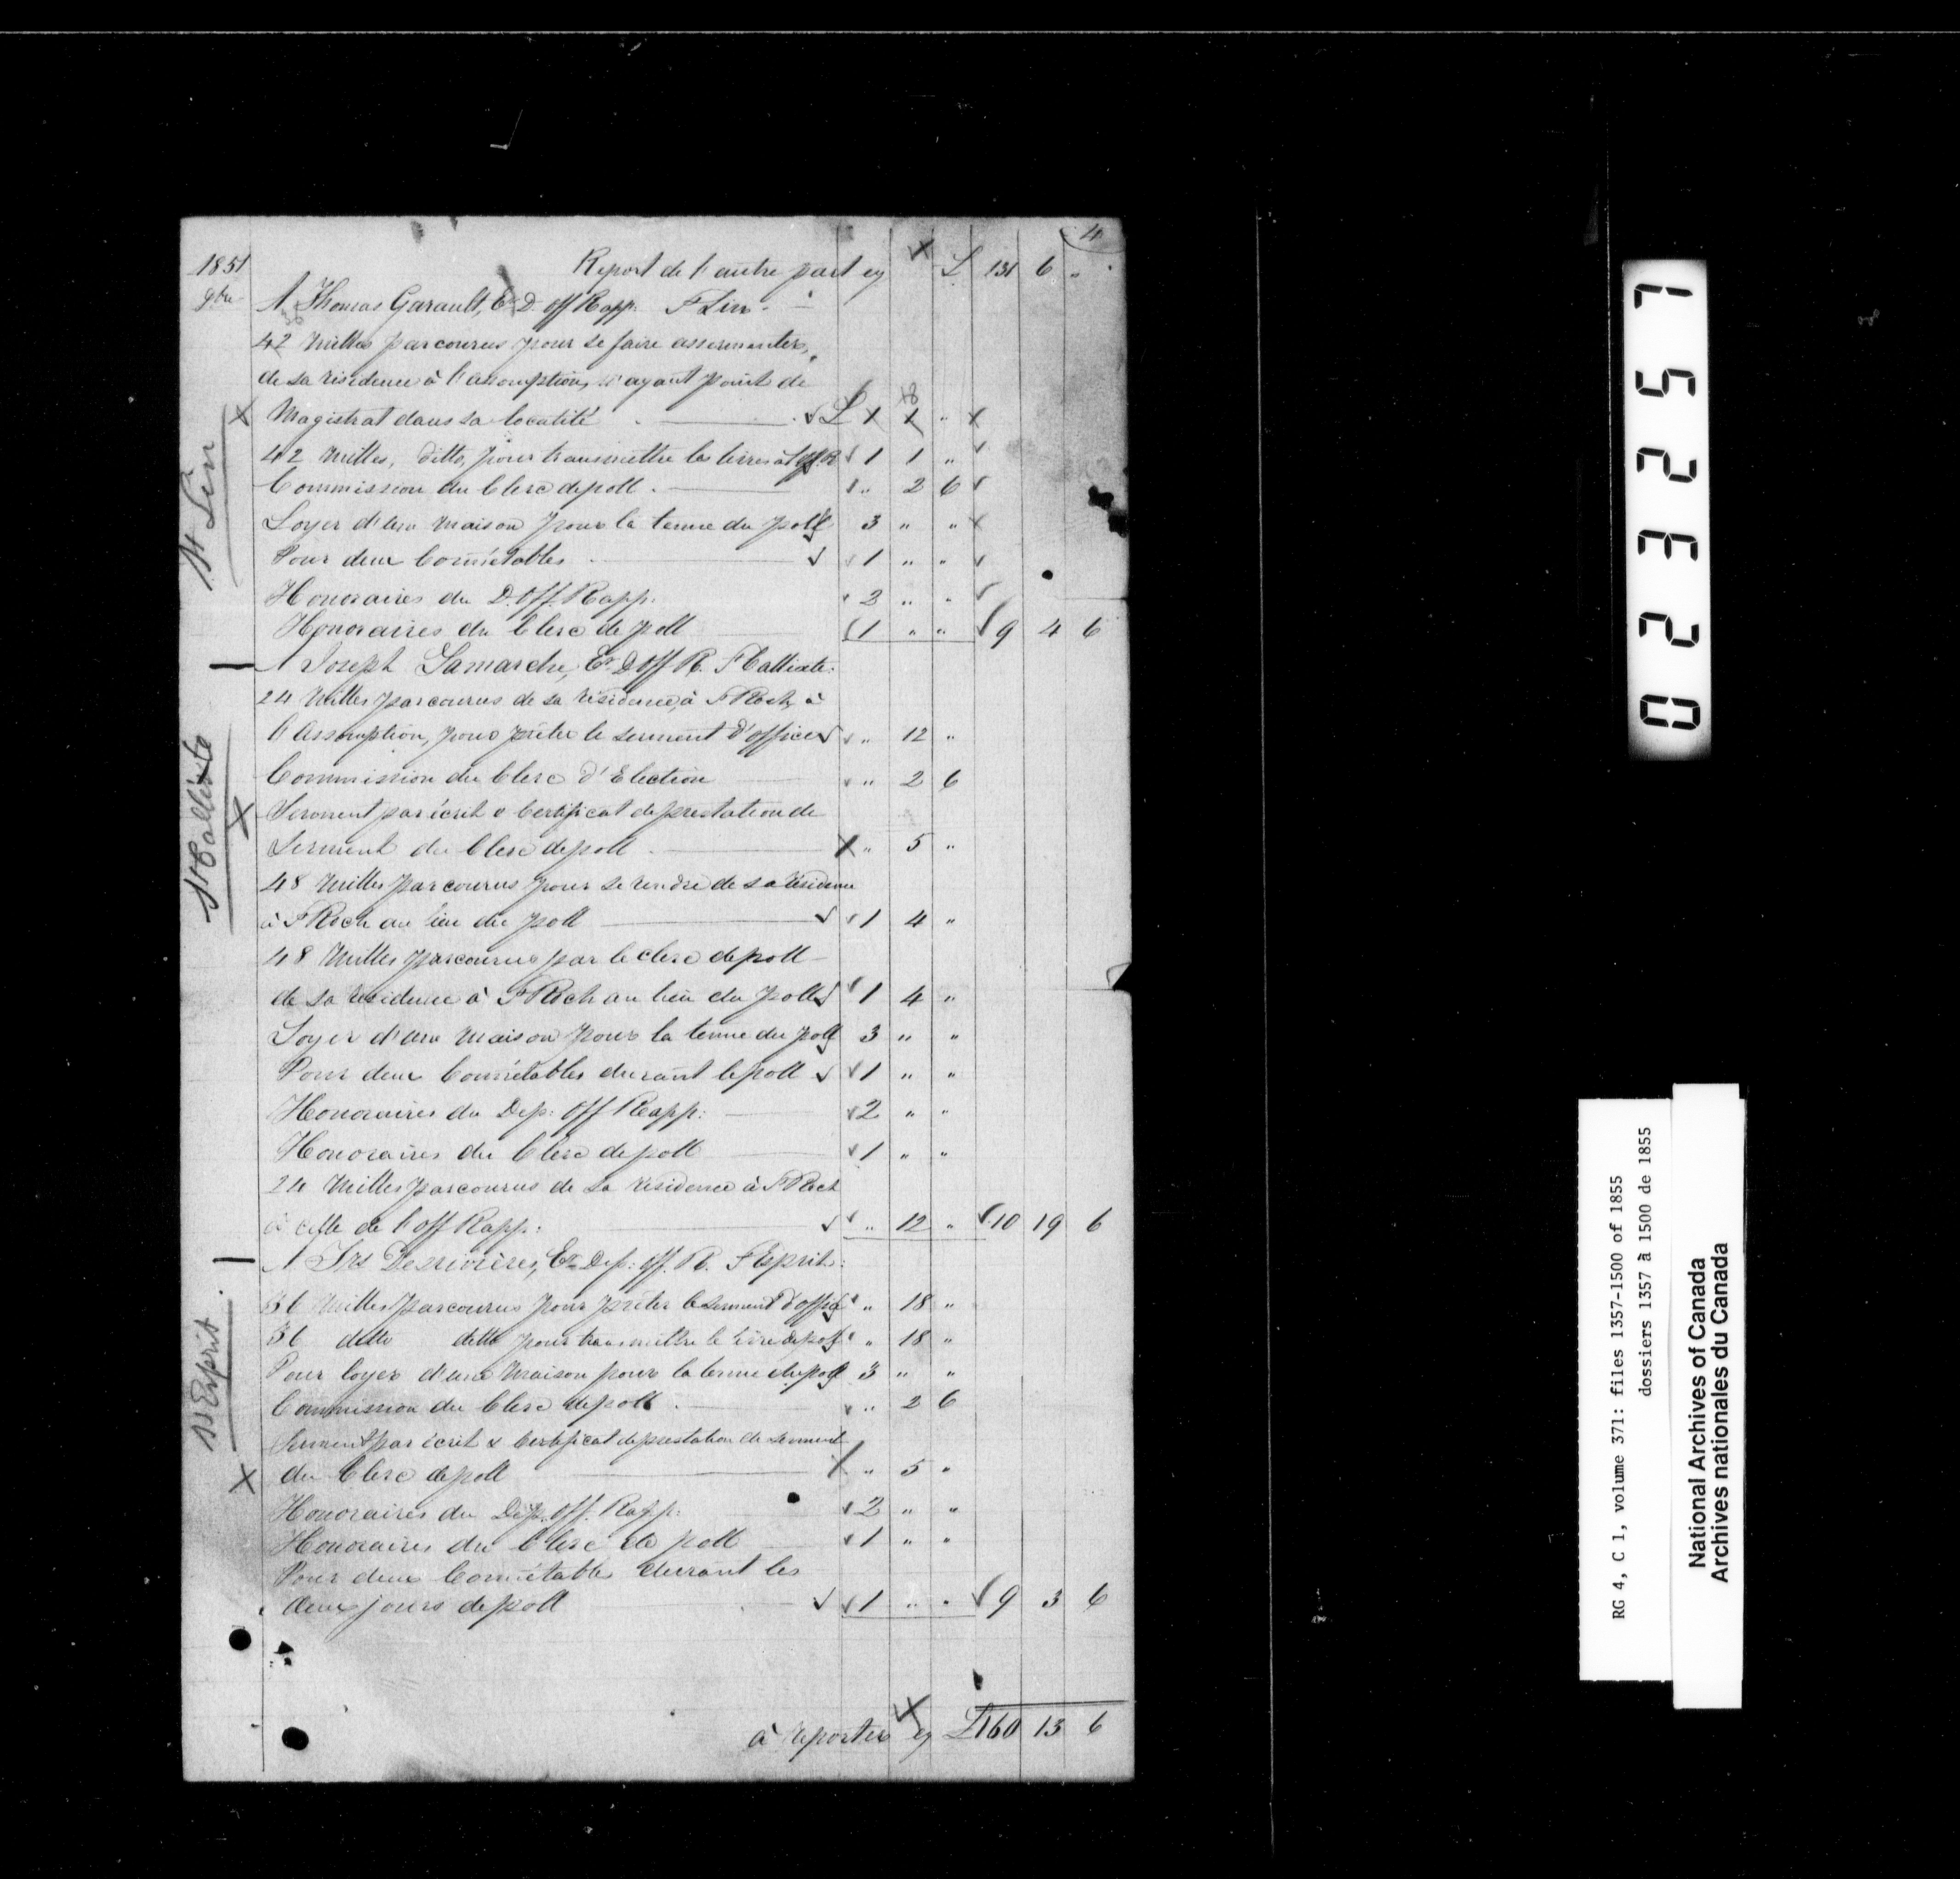 4
1851 Report de l'autre part cy £ 131 6 "
9bre A Thomas Garault, Er D. Off Rapp. St Lin.
42 Milles parcourus pour se faire assermenter,
de sa résidence à l'assomption, n'ayant point de
Magistrat dans sa localité £ 1 1 "
42 Milles, ditto, pour transmettre les livres à l'off. R 1 1 "
Commission du Clerc de poll. " 2 6
Loyer d'une maison pour la tenue du poll 3 " "
Pour deux Connétables 1 " "
Honoraires du D. Off. Rapp. 2 " "
Honoraires du Clerc de poll 1 " " 9 4 6
St Lin
A Joseph Lamarche, Er D Off R. St Callixte.
24 Milles parcourus de sa résidence, à St Roch, à
l'Assomption, pour prêter le serment d'office " 12 "
Commission du Clerc d'Election " 2 6
Serment par écrit & Certificat de prestation de
Serment du Clerc de poll " 5 "
48 Milles parcourus pour se rendre de sa résidence
à St Roch au lieu du poll 1 4 "
48 Milles parcourus par le clerc de poll
de sa résidence à St Roch au lieu du poll 1 4 "
Loyer d'une maison pour la tenue du poll 3 " "
Pour deux Connétables durant le poll 1 " "
Honoraires du Dep: Off Rapp: 2 " "
Honoraires du Clerc de poll 1 " "
24 Milles parcourus de sa résidence à St Roch
à celle de l'off Rapp: " 12 " 10 19 6
St Callixte
A Frs Desrivières, Er Dep: off. R. St Esprit:
36 Milles parcourus pour prêter le serment d'office " 18 "
36 ditto ditto pour transmettre le livre de poll " 18 "
Pour loyer d'une Maison pour la tenue du poll 3 " "
Commission du Clerc de poll. " 2 6
Serment par écrit & Certificat de prestation de serment
du Clerc de poll " 5 "
Honoraires du Dep. Off. Rapp. 2 " "
Honoraires du Clerc de poll 1 " "
Pour deux Connétables durant les
deux jours de poll 1 " " 9 3 6
St Esprit
à reporter cy £160 13 6
02357
RG 4, C 1, volume 371: files 1357-1500 of 1855
dossiers 1357 à 1500 de 1855
National Archives of Canada
Archives nationales du Canada